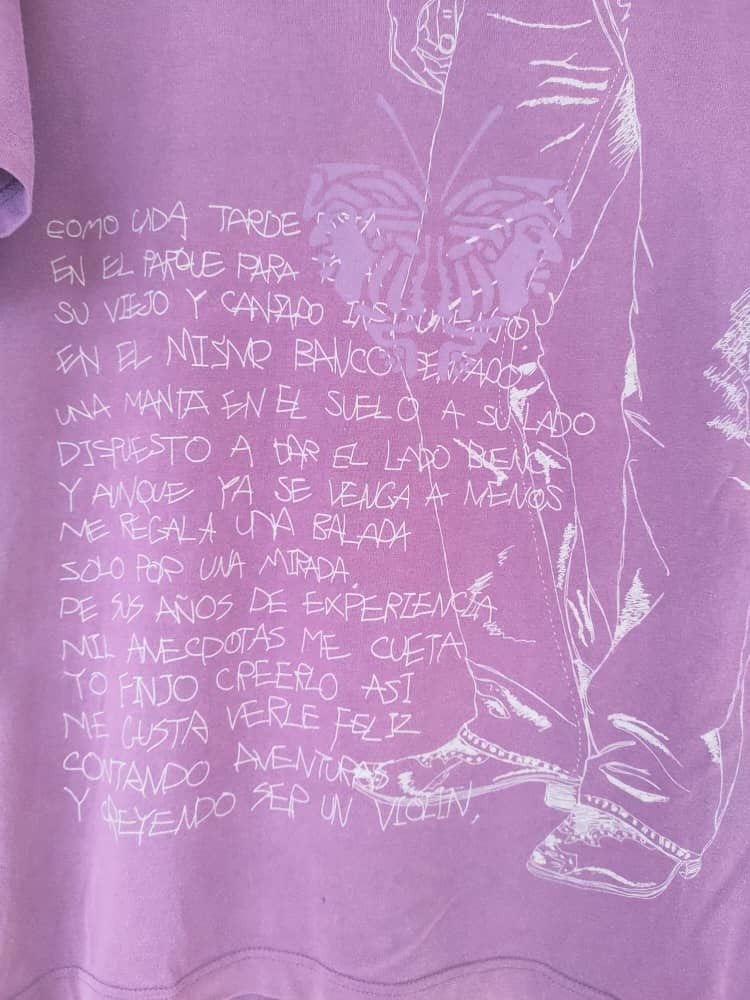 COMO CADA TARDE
EN EL PARQUE PARA
SU VIEJO Y CANSADO INSTRUMENTO
EN EL MISMO BANCO SENTADO
UNA MANTA EN EL SUELO A SU LADO
DISPUESTO A DAR EL LADO BUENO
Y AUNQUE YA SE VENGA A MENOS
ME REGALA UNA BALADA
SOLO POR UNA MIRADA.
DE SUS AÑOS DE EXPERIENCIA
MIL ANECDOTAS ME CUETA
YO FINJO CREERLO ASI
ME GUSTA VERLE FELIZ
CONTANDO AVENTURAS
Y CREYENDO SER UN VIOLIN,